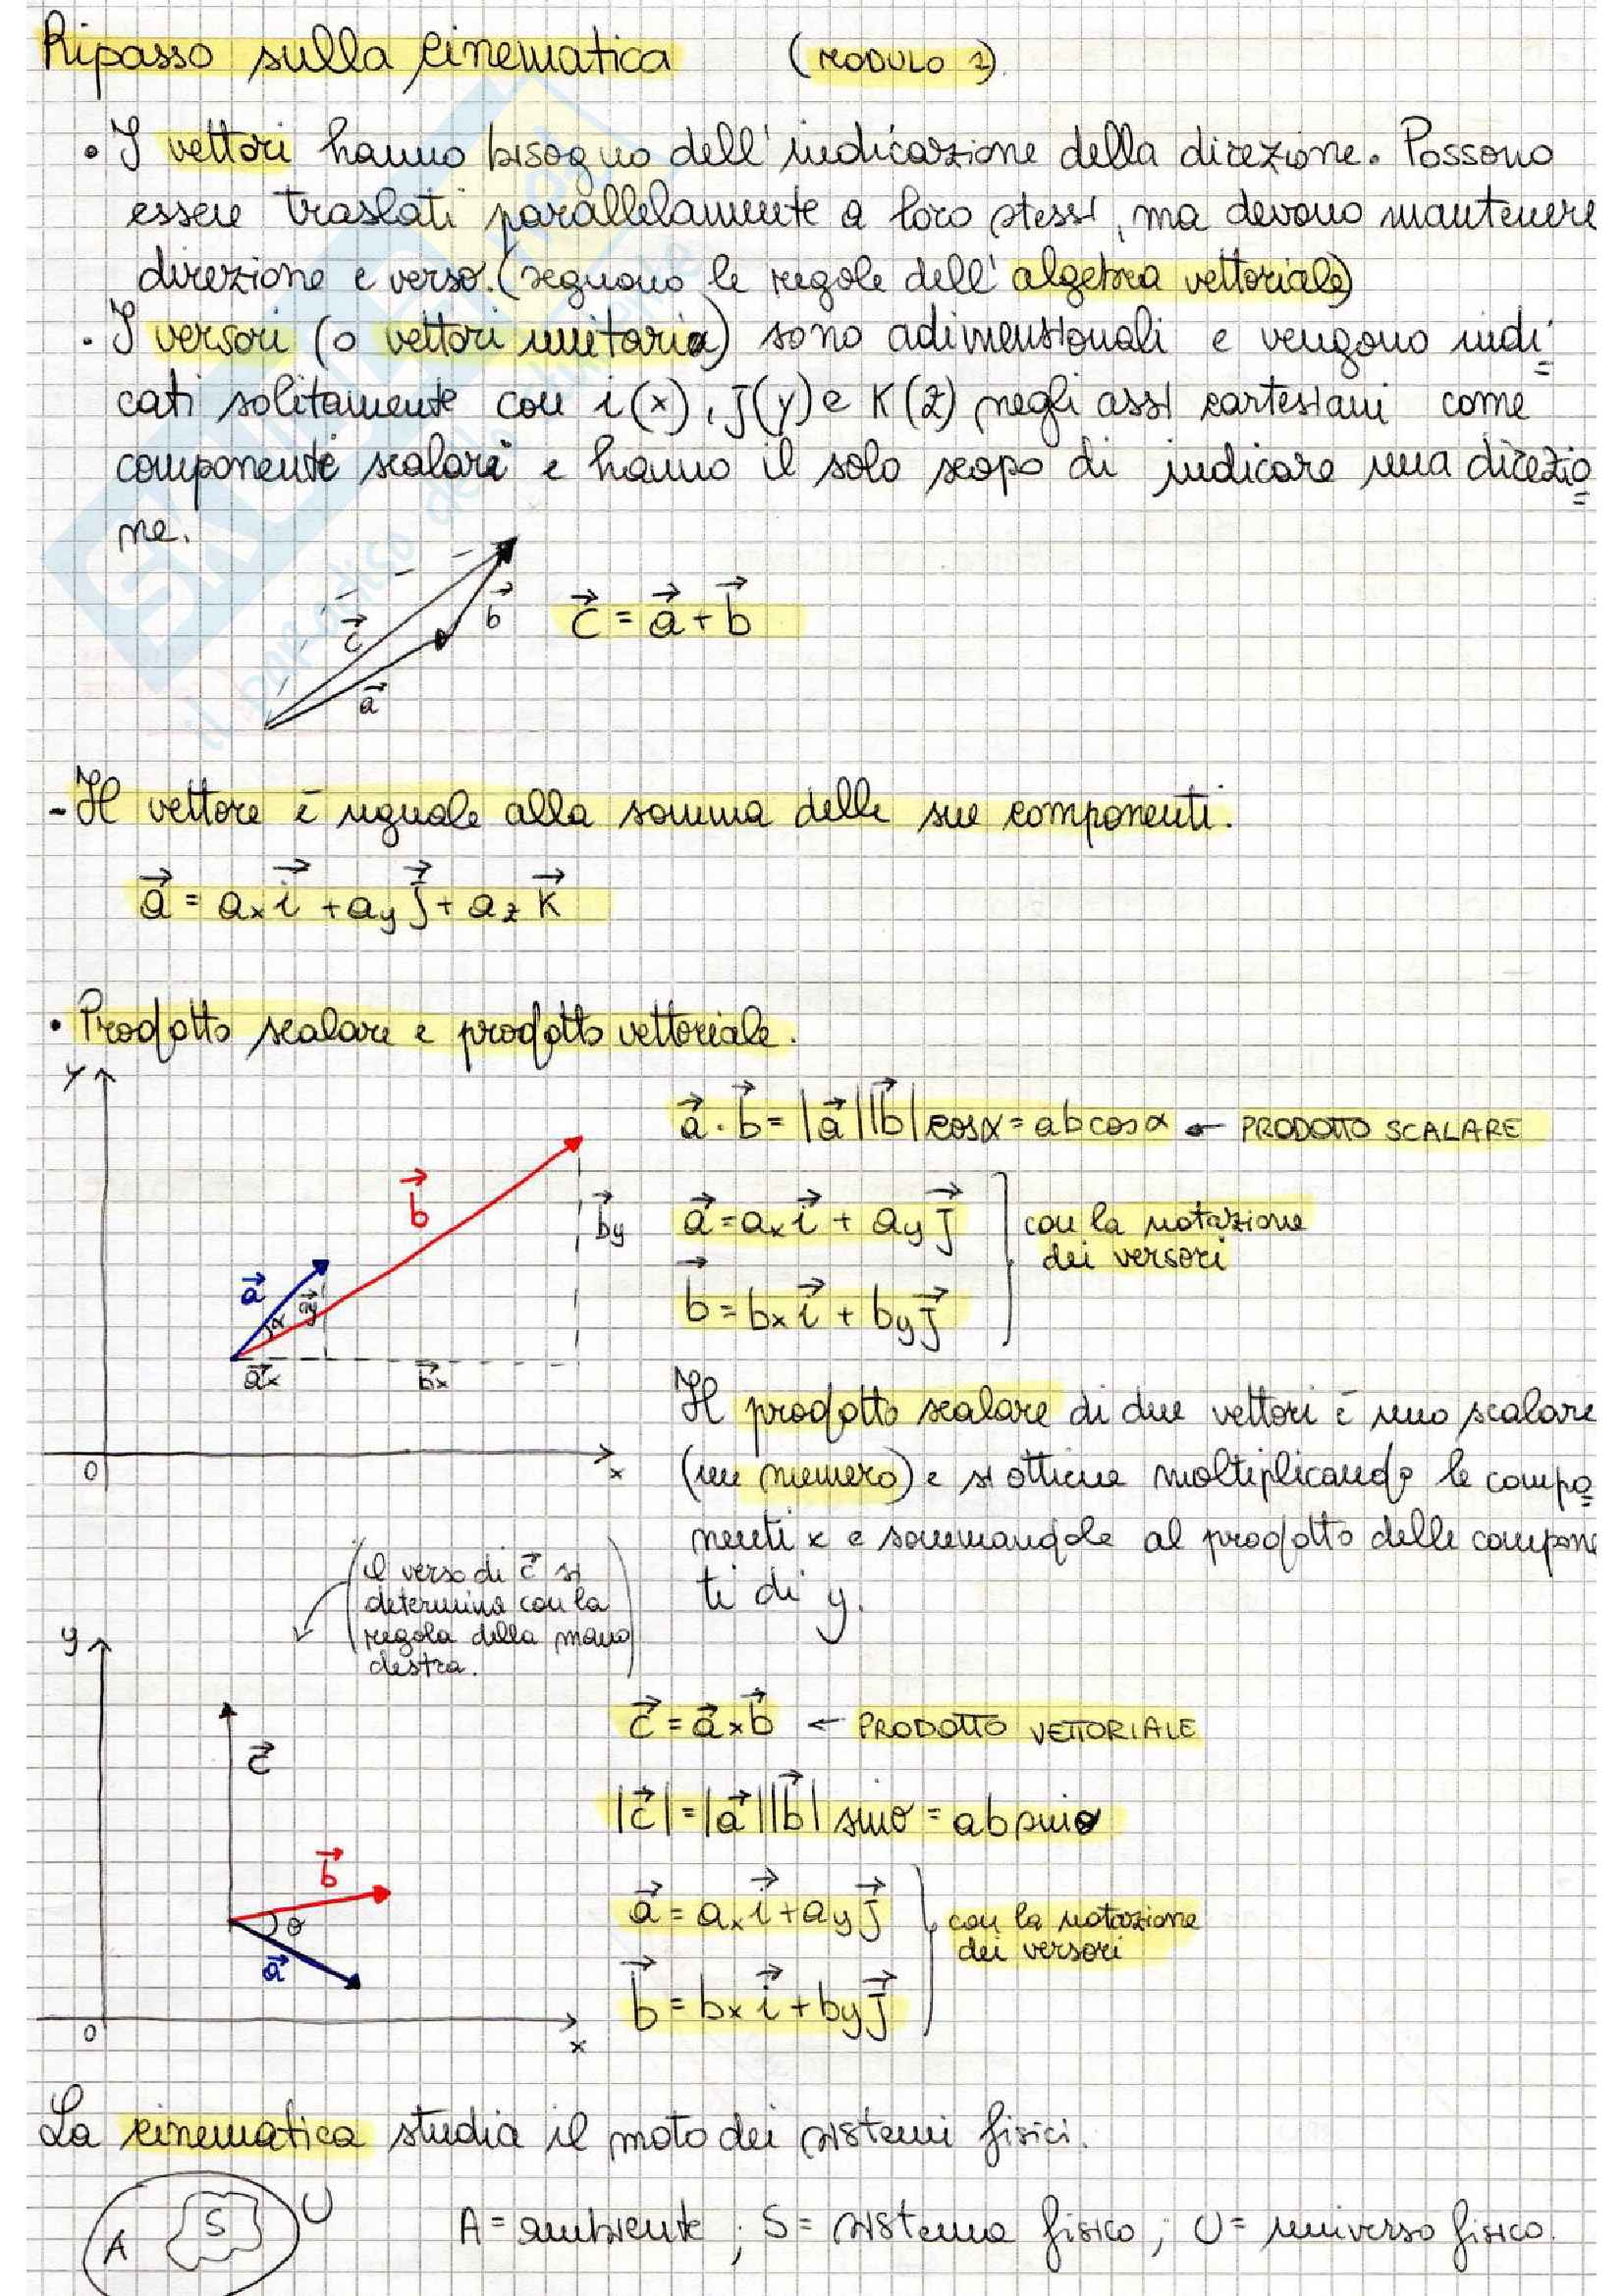 Ripasso sulla cinematica (MODULO 1)
• I vettori hanno bisogno dell'indicazione della direzione. Possono
essere traslati parallelamente a loro stessi, ma devono mantenere
direzione e verso. (seguono le regole dell'algebra vettoriale)
• I versori (o vettori unitari) sono adimensionali e vengono indi=
cati solitamente con i(x), j(y) e K(z) negli assi cartesiani come
componenti scalari e hanno il solo scopo di indicare una direzio=
ne.
c⃗ b⃗ a⃗
c⃗ = a⃗ + b⃗
- Il vettore è uguale alla somma delle sue componenti.
a⃗ = ax i⃗ + ay j⃗ + az k⃗
• Prodotto scalare e prodotto vettoriale.
y
a⃗ · b⃗ = |a⃗||b⃗| cosα = ab cosα ← PRODOTTO SCALARE
b⃗ b⃗y a⃗ α a⃗y a⃗x b⃗x
a⃗ = ax i⃗ + ay j⃗
b⃗ = bx i⃗ + by j⃗
con la notazione
dei versori
0 x
Il prodotto scalare di due vettori è uno scalare
(un numero) e si ottiene moltiplicando le compo=
nenti x e sommandole al prodotto delle compone
ti di y.
(il verso di c⃗ si
determina con la
regola della mano
destra.)
y
c⃗
c⃗ = a⃗ x b⃗ ← PRODOTTO VETTORIALE
|c⃗| = |a⃗||b⃗| sinθ = ab sinθ
b⃗ θ a⃗
a⃗ = ax i⃗ + ay j⃗
b⃗ = bx i⃗ + by j⃗
con la notazione
dei versori
0 x
La cinematica studia il moto dei sistemi fisici.
A S U
A = ambiente ; S = sistema fisico ; U = universo fisico.